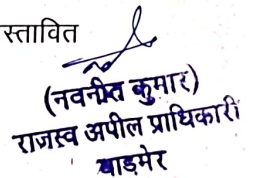 स्तावित
(नवनीत कुमार)
राजस्व अपील प्राधिकारी
बाड़मेर